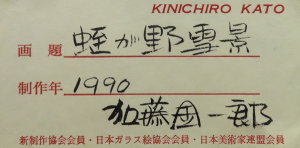 KINICHIRO KATO
画題 蛭が野雪景
制作年 1990
加藤金一郎
新制作協会会員・日本ガラス絵協会会員・日本美術家連盟会員